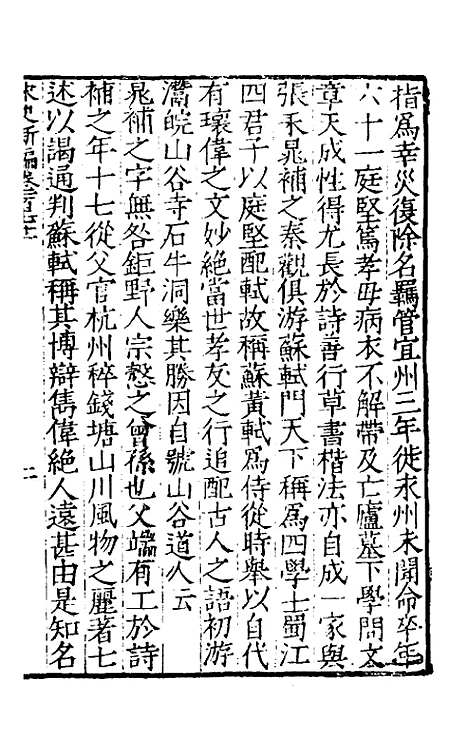 指爲幸災復除名羈管宜州三年徙永州未聞命卒年
六十一庭堅篤孝母病衣不解帶及亡廬墓下學問文
章天成性得尤長於詩善行草書楷法亦自成一家與
張耒晁補之秦觀俱游蘇軾門天下稱爲四學士蜀江
四君子以庭堅配軾故稱蘇黃軾爲侍從時舉以自代
有瓌偉之文妙絕當世孝友之行追配古人之語初游
灊皖山谷寺石牛洞樂其勝因自號山谷道人云
晁補之字無咎鉅野人宗愨之曾孫也父端有工於詩
補之年十七從父官杭州稡錢塘山川風物之麗著七
述以謁通判蘇軾稱其博辯雋偉絕人遠甚由是知名
宋史新編卷
二